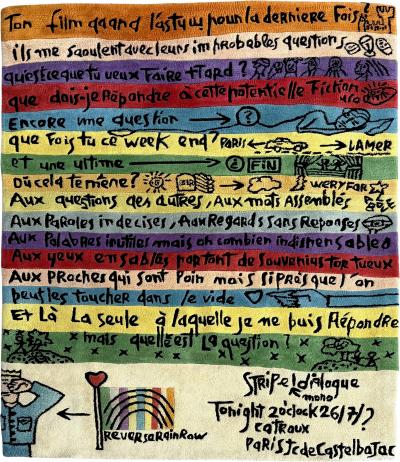 Ton film quand l'astu vu pour la derniere Fois?
ils me saoulent avec leurs improbables questions
qu'est ce que tu veux Faire + Tard ?
que dois-je Répondre à cette potentielle Fiction
Encore une question → ?
que Fais tu ce week end? PARIS LAMER
et une ultime → ? FIN
Où cela te mène? → WERY FAR
Aux questions des autres, Aux mots Assemblés
Aux Paroles indecises, Aux Regards sans Reponses
Aux Palabres inutiles mais ô combien indispensables
Aux yeux ensables partant de souvenirs tortueux
Aux PRoches qui sont loin mais si PRès que l'on
peut les toucher dans le vide
Et Là La seule à laquelle je ne puis Répondre
mais quelle est La question ?
StRipe! dialogue
mono
Tonight 2 o'clock 26/7/?
ReveRse RainRow
PARIS JcdeCastelbaJac